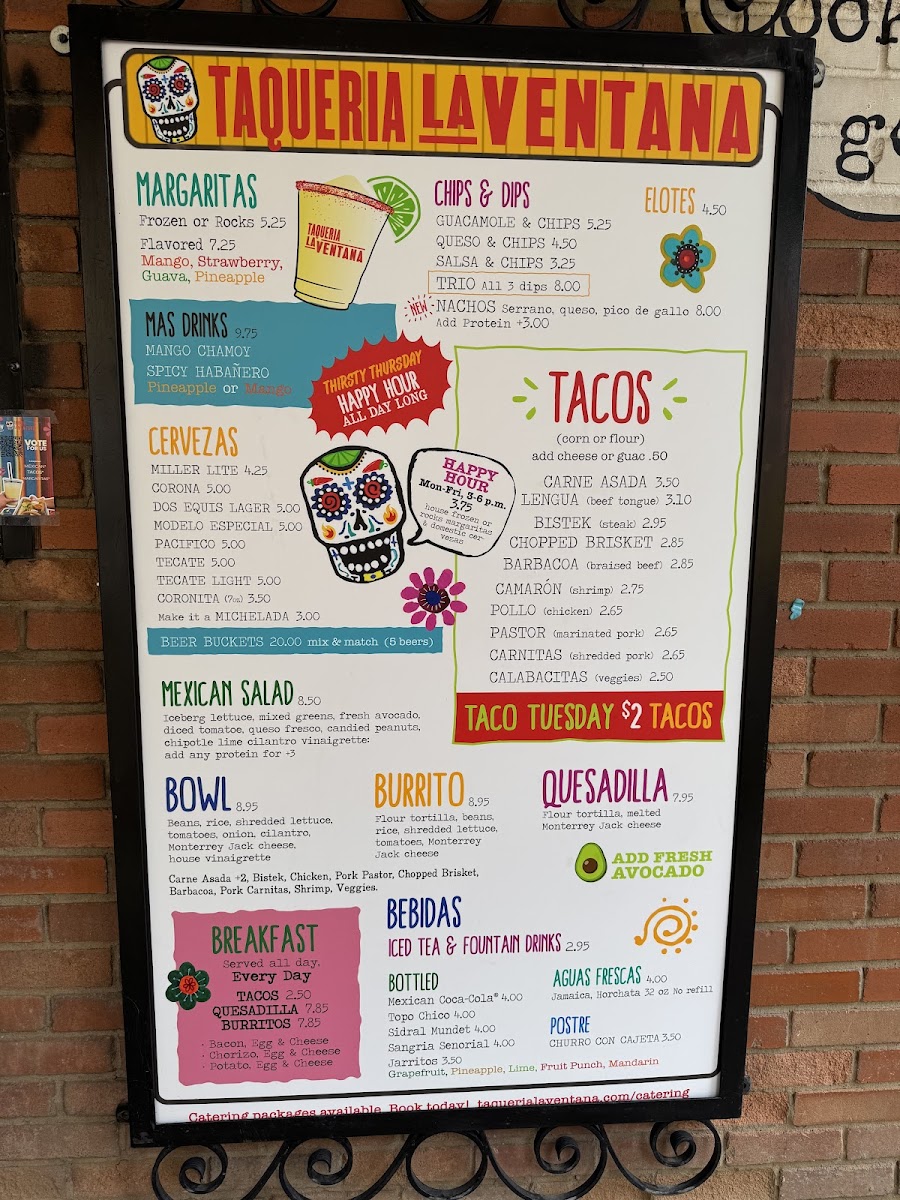 TAQUERIA LA VENTANA
MARGARITAS
Frozen or Rocks 5.25
Flavored 7.25
Mango, Strawberry,
Guava, Pineapple
TAQUERIA
LA VENTANA
CHIPS & DIPS
GUACAMOLE & CHIPS 5.25
QUESO & CHIPS 4.50
SALSA & CHIPS 3.25
TRIO All 3 dips 8.00
NEW NACHOS Serrano, queso, pico de gallo 8.00
Add Protein +3.00
ELOTES 4.50
MAS DRINKS 9.75
MANGO CHAMOY
SPICY HABAÑERO
Pineapple or Mango
THIRSTY THURSDAY
HAPPY HOUR
ALL DAY LONG
CERVEZAS
MILLER LITE 4.25
CORONA 5.00
DOS EQUIS LAGER 5.00
MODELO ESPECIAL 5.00
PACIFICO 5.00
TECATE 5.00
TECATE LIGHT 5.00
CORONITA (7oz) 3.50
Make it a MICHELADA 3.00
BEER BUCKETS 20.00 mix & match (5 beers)
HAPPY
HOUR
Mon-Fri, 3-6 p.m.
3.75
house frozen or
rocks margaritas
& domestic cer-
vezas
TACOS
(corn or flour)
add cheese or guac .50
CARNE ASADA 3.50
LENGUA (beef tongue) 3.10
BISTEK (steak) 2.95
CHOPPED BRISKET 2.85
BARBACOA (braised beef) 2.85
CAMARÓN (shrimp) 2.75
POLLO (chicken) 2.65
PASTOR (marinated pork) 2.65
CARNITAS (shredded pork) 2.65
CALABACITAS (veggies) 2.50
TACO TUESDAY $2 TACOS
MEXICAN SALAD 8.50
Iceberg lettuce, mixed greens, fresh avocado,
diced tomatoe, queso fresco, candied peanuts,
chipotle lime cilantro vinaigrette:
add any protein for +3
BOWL 8.95
Beans, rice, shredded lettuce,
tomatoes, onion, cilantro,
Monterrey Jack cheese,
house vinaigrette
BURRITO 8.95
Flour tortilla, beans,
rice, shredded lettuce,
tomatoes, Monterrey
Jack cheese
QUESADILLA 7.95
Flour tortilla, melted
Monterrey Jack cheese
ADD FRESH
AVOCADO
Carne Asada +2, Bistek, Chicken, Pork Pastor, Chopped Brisket,
Barbacoa, Pork Carnitas, Shrimp, Veggies.
BREAKFAST
Served all day,
Every Day
TACOS 2.50
QUESADILLA 7.85
BURRITOS 7.85
· Bacon, Egg & Cheese
· Chorizo, Egg & Cheese
· Potato, Egg & Cheese
BEBIDAS
ICED TEA & FOUNTAIN DRINKS 2.95
BOTTLED
Mexican Coca-Cola® 4.00
Topo Chico 4.00
Sidral Mundet 4.00
Sangria Senorial 4.00
Jarritos 3.50
Grapefruit, Pineapple, Lime, Fruit Punch, Mandarin
AGUAS FRESCAS 4.00
Jamaica, Horchata 32 oz No refill
POSTRE
CHURRO CON CAJETA 3.50
Catering packages available. Book today! taquerialaventana.com/catering
VOTE
FOR US